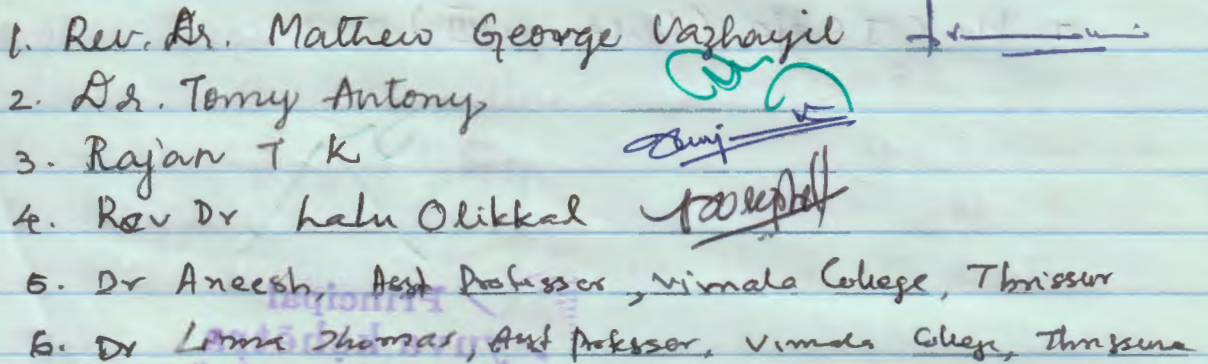 1. Rev. Dr. Mathew George Vazhayil
2. Dr. Tomy Antony
3. Rajan T K
4. Rev Dr Lalu Olikkal
5. Dr Aneesh, Asst Professor, Vimala College, Thrissur
6. Dr Thomas, Asst Professor, Vimala College, Thrissur
Principal